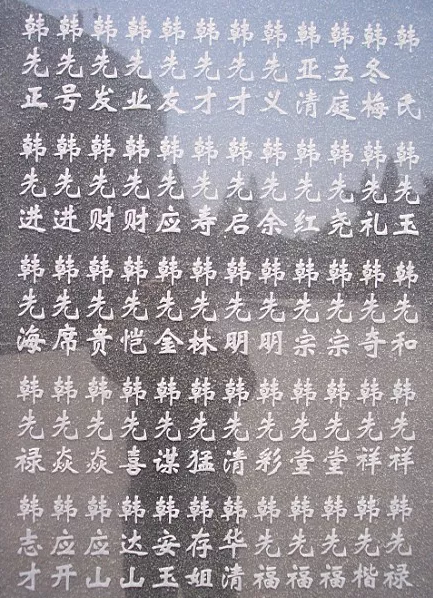 韩民
韩冬梅
韩立庭
韩亚清
韩先义
韩先才
韩先才
韩先友
韩先业
韩先发
韩先号
韩先正
韩先玉
韩先礼
韩先尧
韩先红
韩先余
韩先启
韩先寿
韩先应
韩先财
韩先财
韩先进
韩先进
韩先和
韩先奇
韩先宗
韩先宗
韩先明
韩先明
韩先林
韩先金
韩先恺
韩先贵
韩先席
韩先海
韩先祥
韩先祥
韩先堂
韩先堂
韩先彩
韩先清
韩先猛
韩先谋
韩先喜
韩先焱
韩先焱
韩先禄
韩先禄
韩先楷
韩先福
韩先福
韩先福
韩华清
韩存姐
韩安玉
韩达山
韩应山
韩应开
韩志才